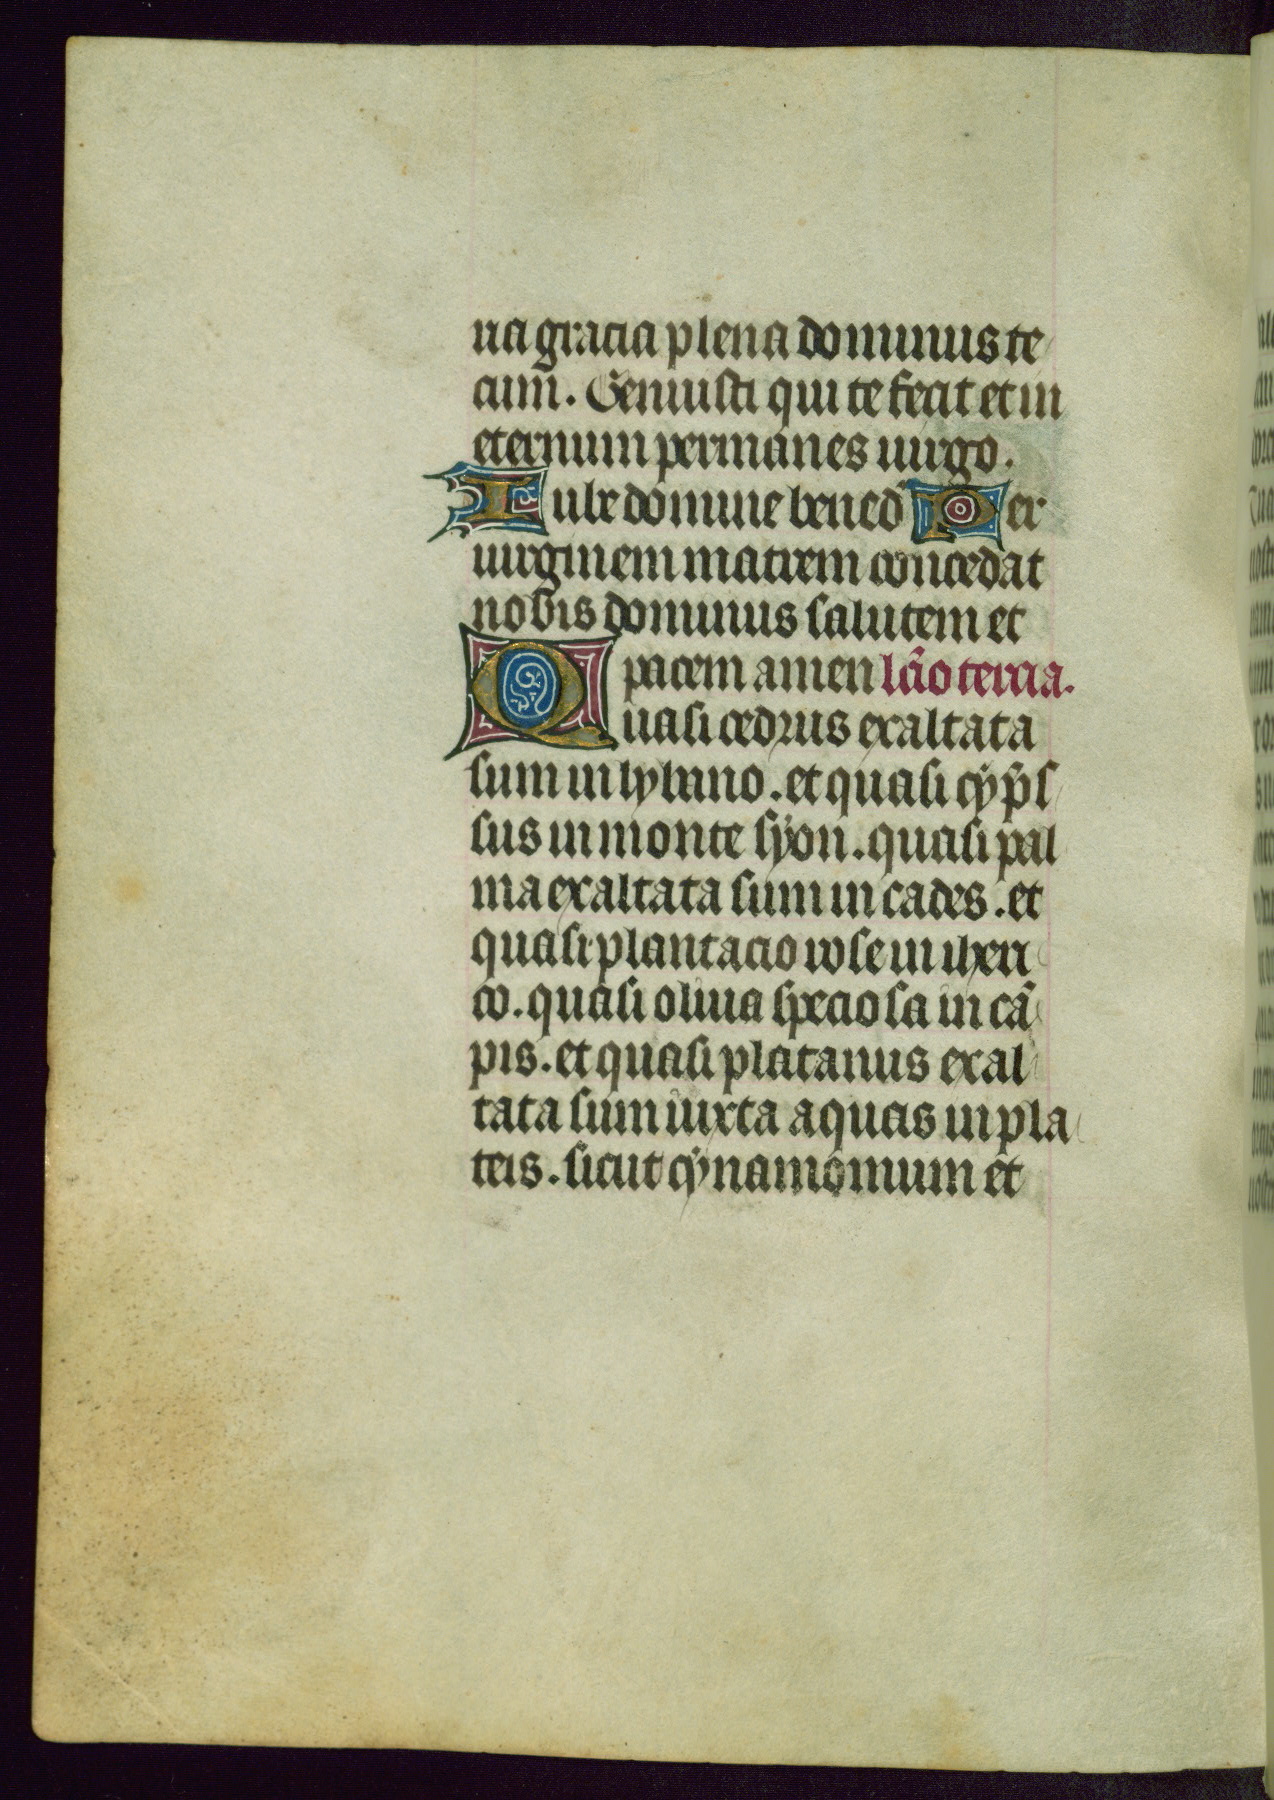 ua gracia plena dominus te
cum. Genuisti qui te fecit et in
eternum permanes uirgo.
Iube domine bened Per
uirginem matrem concedat
nobis dominus salutem et
pacem amen lc̄o tercia.
Quasi cedrus exaltata
sum in lybano. et quasi cyp̄s
sus in monte syon. quasi pal
ma exaltata sum in cades. et
quasi plantacio rose in iheri
co. quasi oliua speciosa in cā
pis. et quasi platanus exal
tata sum iuxta aquas in pla
teis. sicut cynamomum et